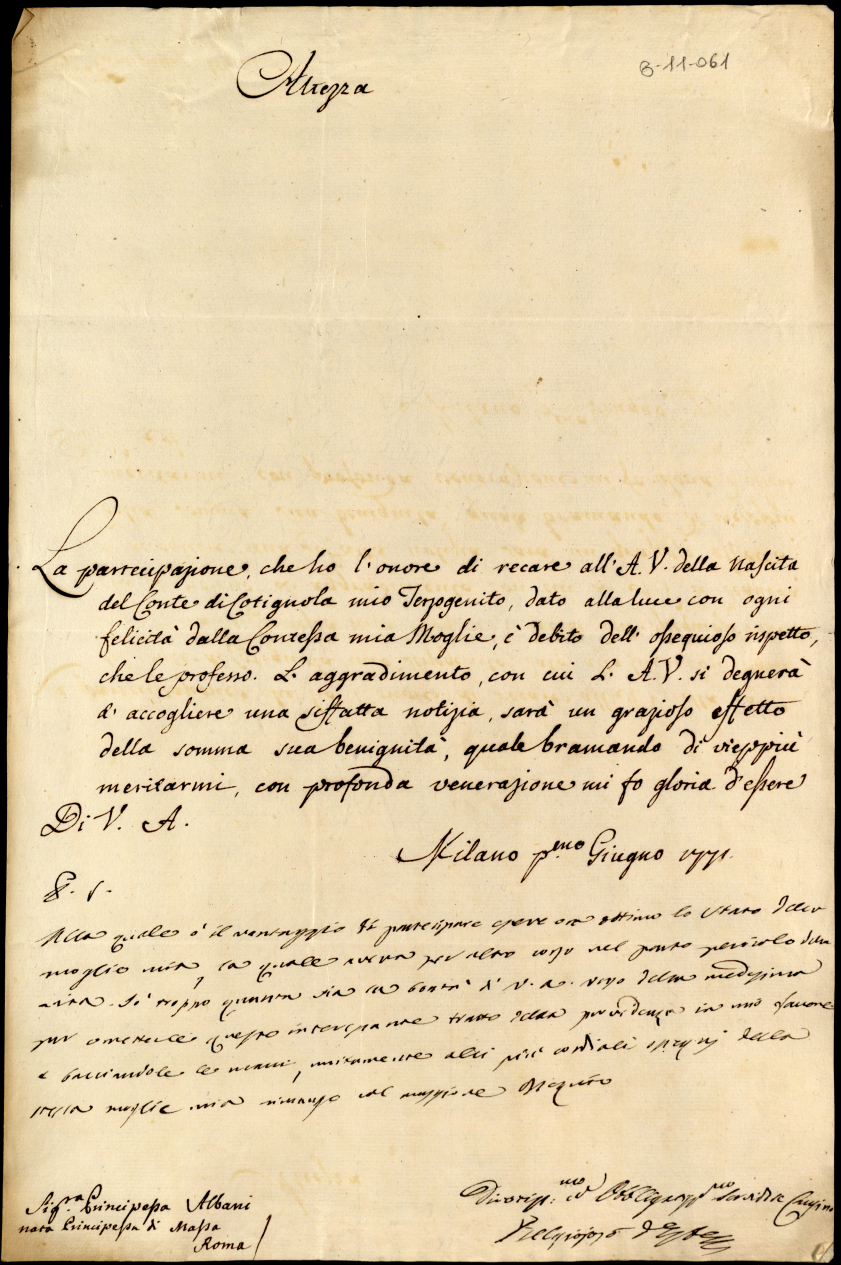 Altezza
B-11-061
La partecipazione, che ho l'onore di recare all'A. V. della Nascita
del Conte di Cotignola mio Terzogenito, dato alla luce con ogni
felicità dalla Contessa mia Moglie, è debito dell' ossequioso rispetto,
che le professo. L' aggradimento, con cui L' A. V. si degnerà
d' accogliere una siffatta notizia, sarà un grazioso effetto
della somma sua benignità, quale bramando di vieppiù
meritarmi, con profonda venerazione mi fo gloria d'essere
Di V. A.
Milano p.mo Giugno 1771.
P. S.
Alla quale ò il vantaggio di partecipare essere ora ottimo lo stato della
moglie mia, la quale aveva per altro corso nel parto pericolo della
vita. Sò troppo quanta sia la bontà di V. A. verso della medesima
per ometterle questo interessante tratto della providenza in mio favore
e baciandole le mani, unitamente alli più cordiali ossequj della
stessa moglie mia rimango col maggiore ossequio
Sig.ra Principessa Albani
nata Principessa di Massa
Roma
Divotiss.mo ed Obbligatiss.mo Servid.e Cugino
Belgiojoso d'Este